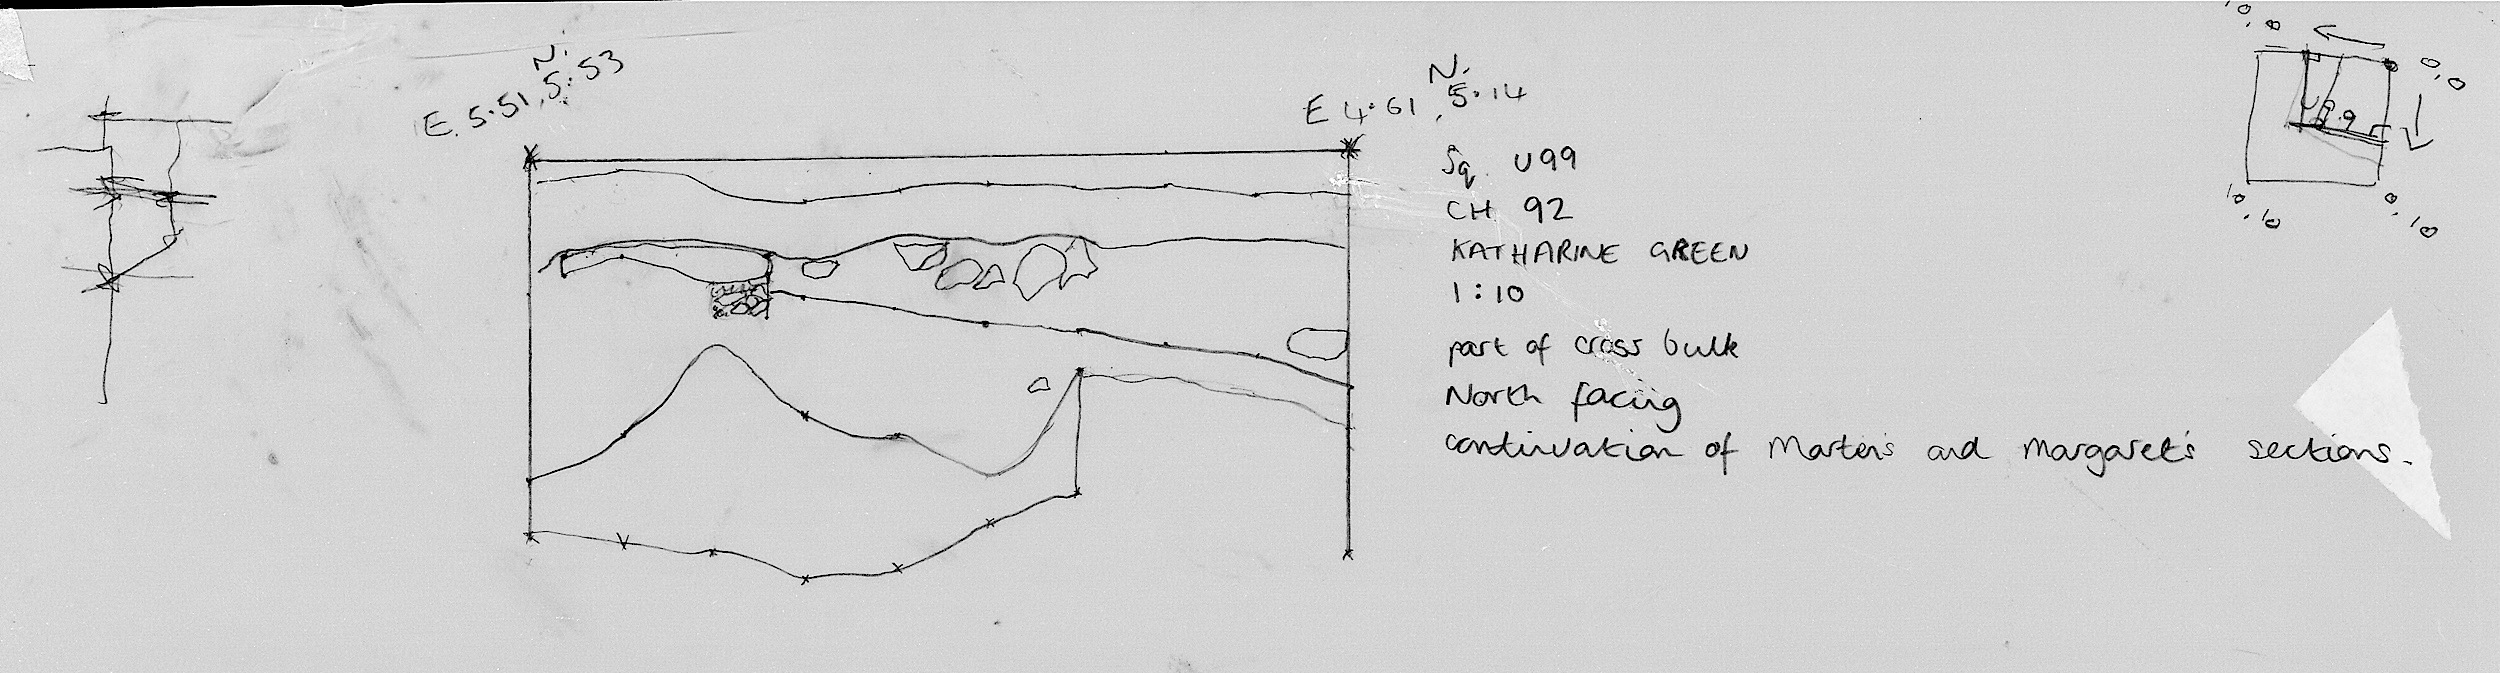 N.
E. 5.51, 5.53
N.
E 4.61, 5.14
Sq. U99
CH 92
KATHARINE GREEN
1:10
part of cross bulk
North facing
continuation of Marten's and Margaret's sections.
10,0
0,0
U99
10,10
0,10